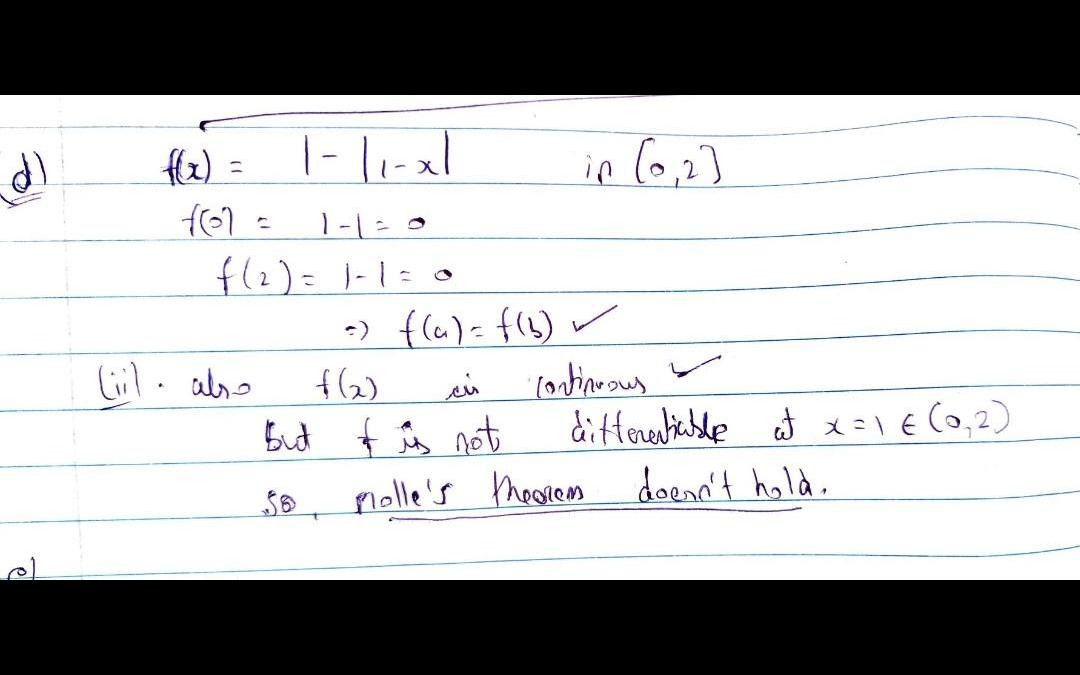 (d) f(x) = 1 - |1-x| in [0,2]
f(0) = 1-1 = 0
f(2) = 1-1 = 0
=> f(a) = f(b) ✓
(ii). also f(x) is continuous ✓
but f is not differentiable at x=1 ∈ (0,2)
so, rolle's theorem doesn't hold.
e)